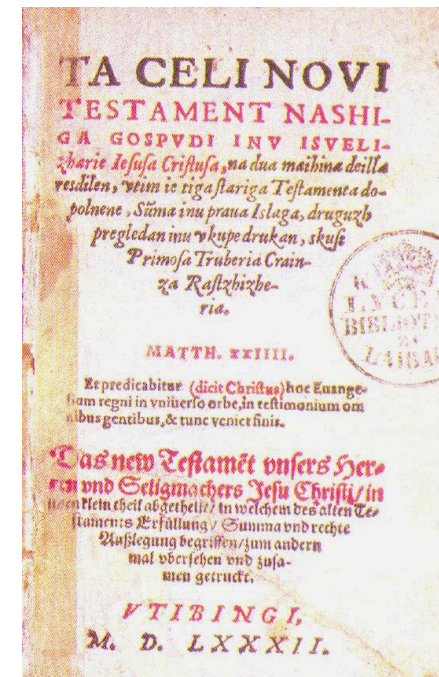 TA CELI NOVI
TESTAMENT NASHI-
GA GOSPVDI INV ISVELI-
zharie Iesusa Cristusa, na dua maihina deilla
resdilen, vtim ie tiga stariga Testamenta do-
polnene, Sũma inu praua Islaga, druguzh
pregledan inu vkupe drukan, skusi
Primosa Truberia Crain-
za Rastzhizhe-
ria.
MATTH. XXIIII.
Et predicabitur (dicit Christus) hoc Euange-
lium regni in vniuerso orbe, in testimonium om
nibus gentibus, & tunc veniet finis.
Das new Testamēt vnsers Her-
ren vnd Seligmachers Jesu Christi/ in
zween klein theil abgetheilt/ in welchem des alten Te-
staments Erfüllung/ Summa vnd rechte
Außlegung begriffen/ zum andern
mal vbersehen vnd zusa-
men getruckt.
VTIBINGI,
M. D. LXXXII.
LYCE
BIBLIOT
ZU
LAIBA